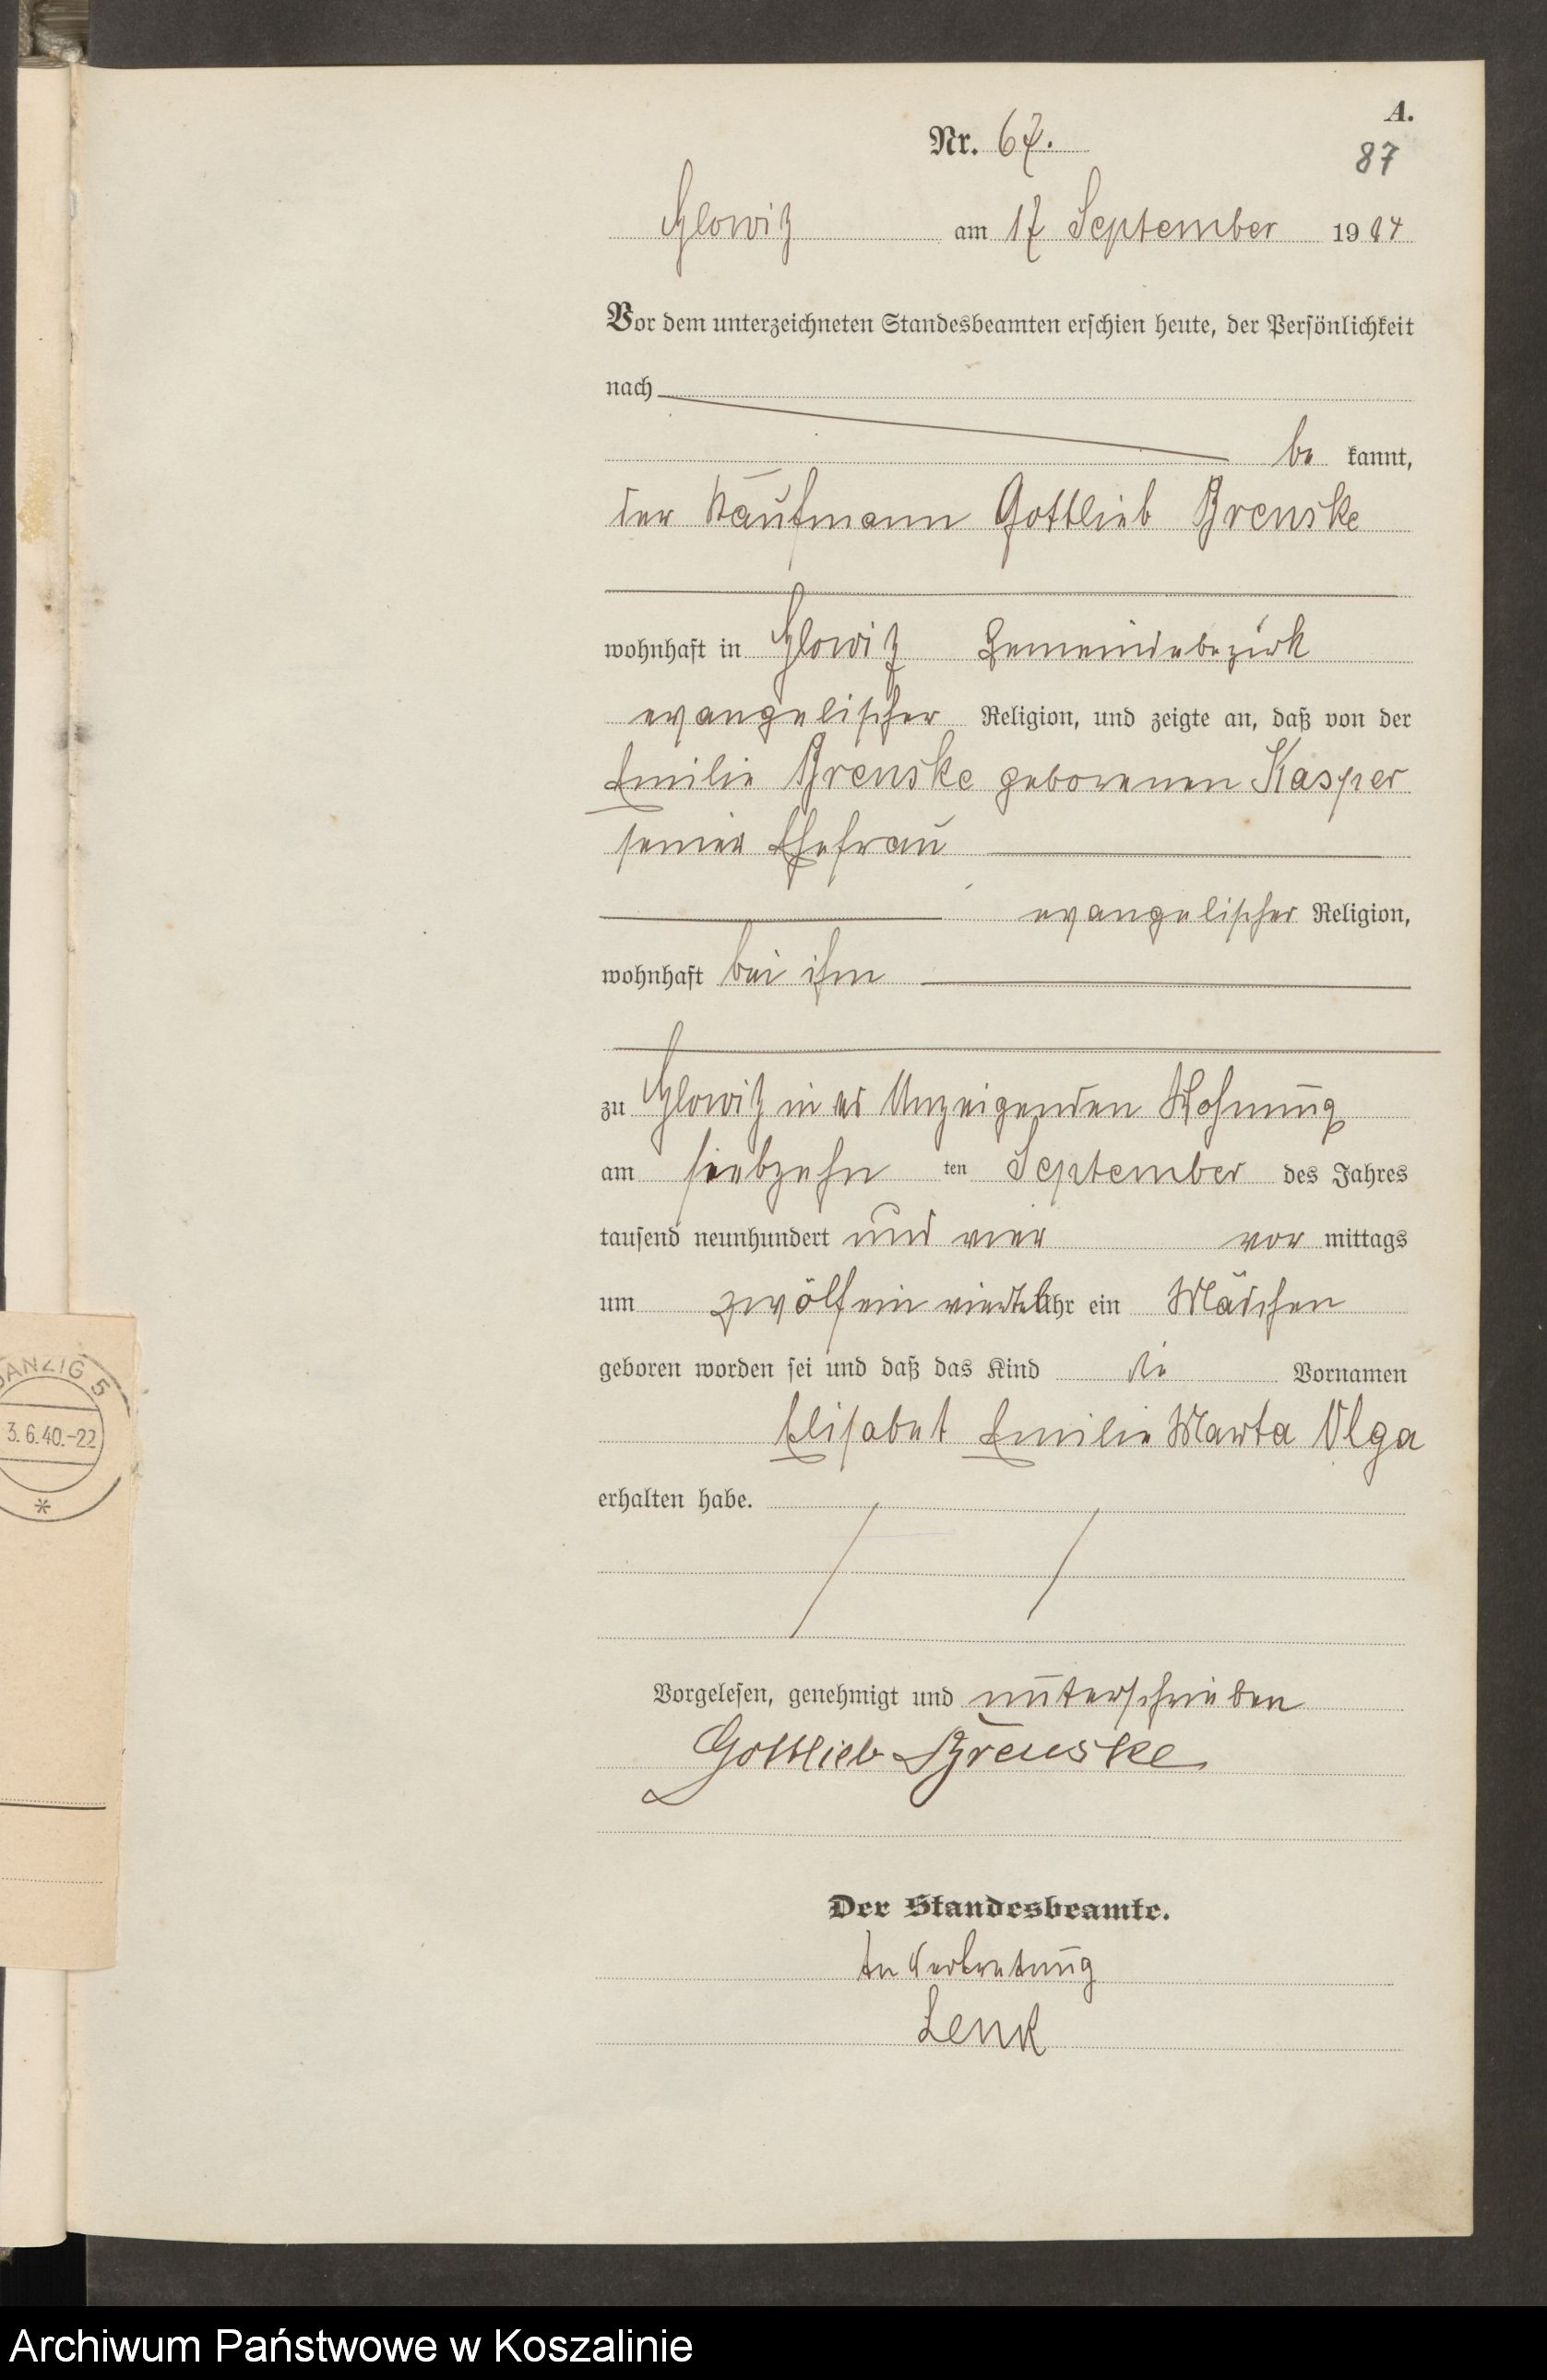 A.
Nr. 67.
87
Glowitz am 17 September 1904
Vor dem unterzeichneten Standesbeamten erschien heute, der Persönlichkeit
nach
be kannt,
der Kaufmann Gottlieb Brenske
wohnhaft in Glowitz Gemeindebezirk
evangelischer Religion, und zeigte an, daß von der
Emilie Brenske geborenen Kasper
seiner Ehefrau
evangelischer Religion,
wohnhaft bei ihm
zu Glowitz in des Anzeigenden Wohnung
am siebzehn ten September des Jahres
tausend neunhundert und vier vor mittags
um zwölfein viertel Uhr ein Mädchen
geboren worden sei und daß das Kind die Vornamen
Elisabet Emilie Marta Olga
erhalten habe.
Vorgelesen, genehmigt und unterschrieben
Gottlieb Brenske
Der Standesbeamte.
In Vertretung
Lenk
DANZIG 5
3.6.40.-22
*
Archiwum Państwowe w Koszalinie